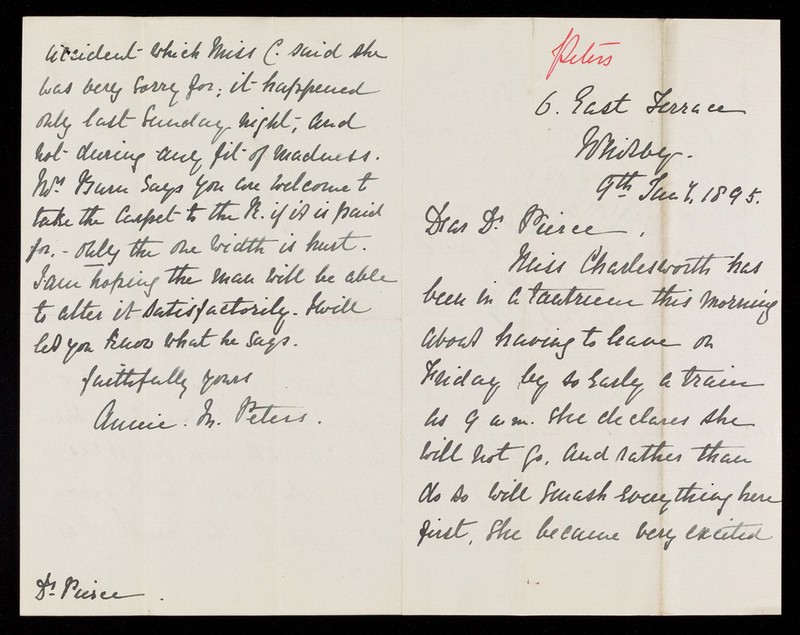 Peters
6. East Terrace
Whitby.
9th Jany. 1895.
Dear Dr Pierce,
Miss Charlesworth has
been in a tantrum this morning
about having to leave on
Friday by so early a train
as 9 a.m. She declares she
will not go, and rather than
do so will smash everything here
first, She became very excited
accident which Miss C. said she
was very sorry for; it happened
only last Sunday night, and
not during any fit of madness.
Mrs says you are welcome t
take the carpet to the R. if it is paid
for, - only the one width is hurt.
I am hoping the man will be able
to alter it satisfactorily. I will
let you know what he says.
faithfully yours
Annie. M. Peters.
Dr Pierce.